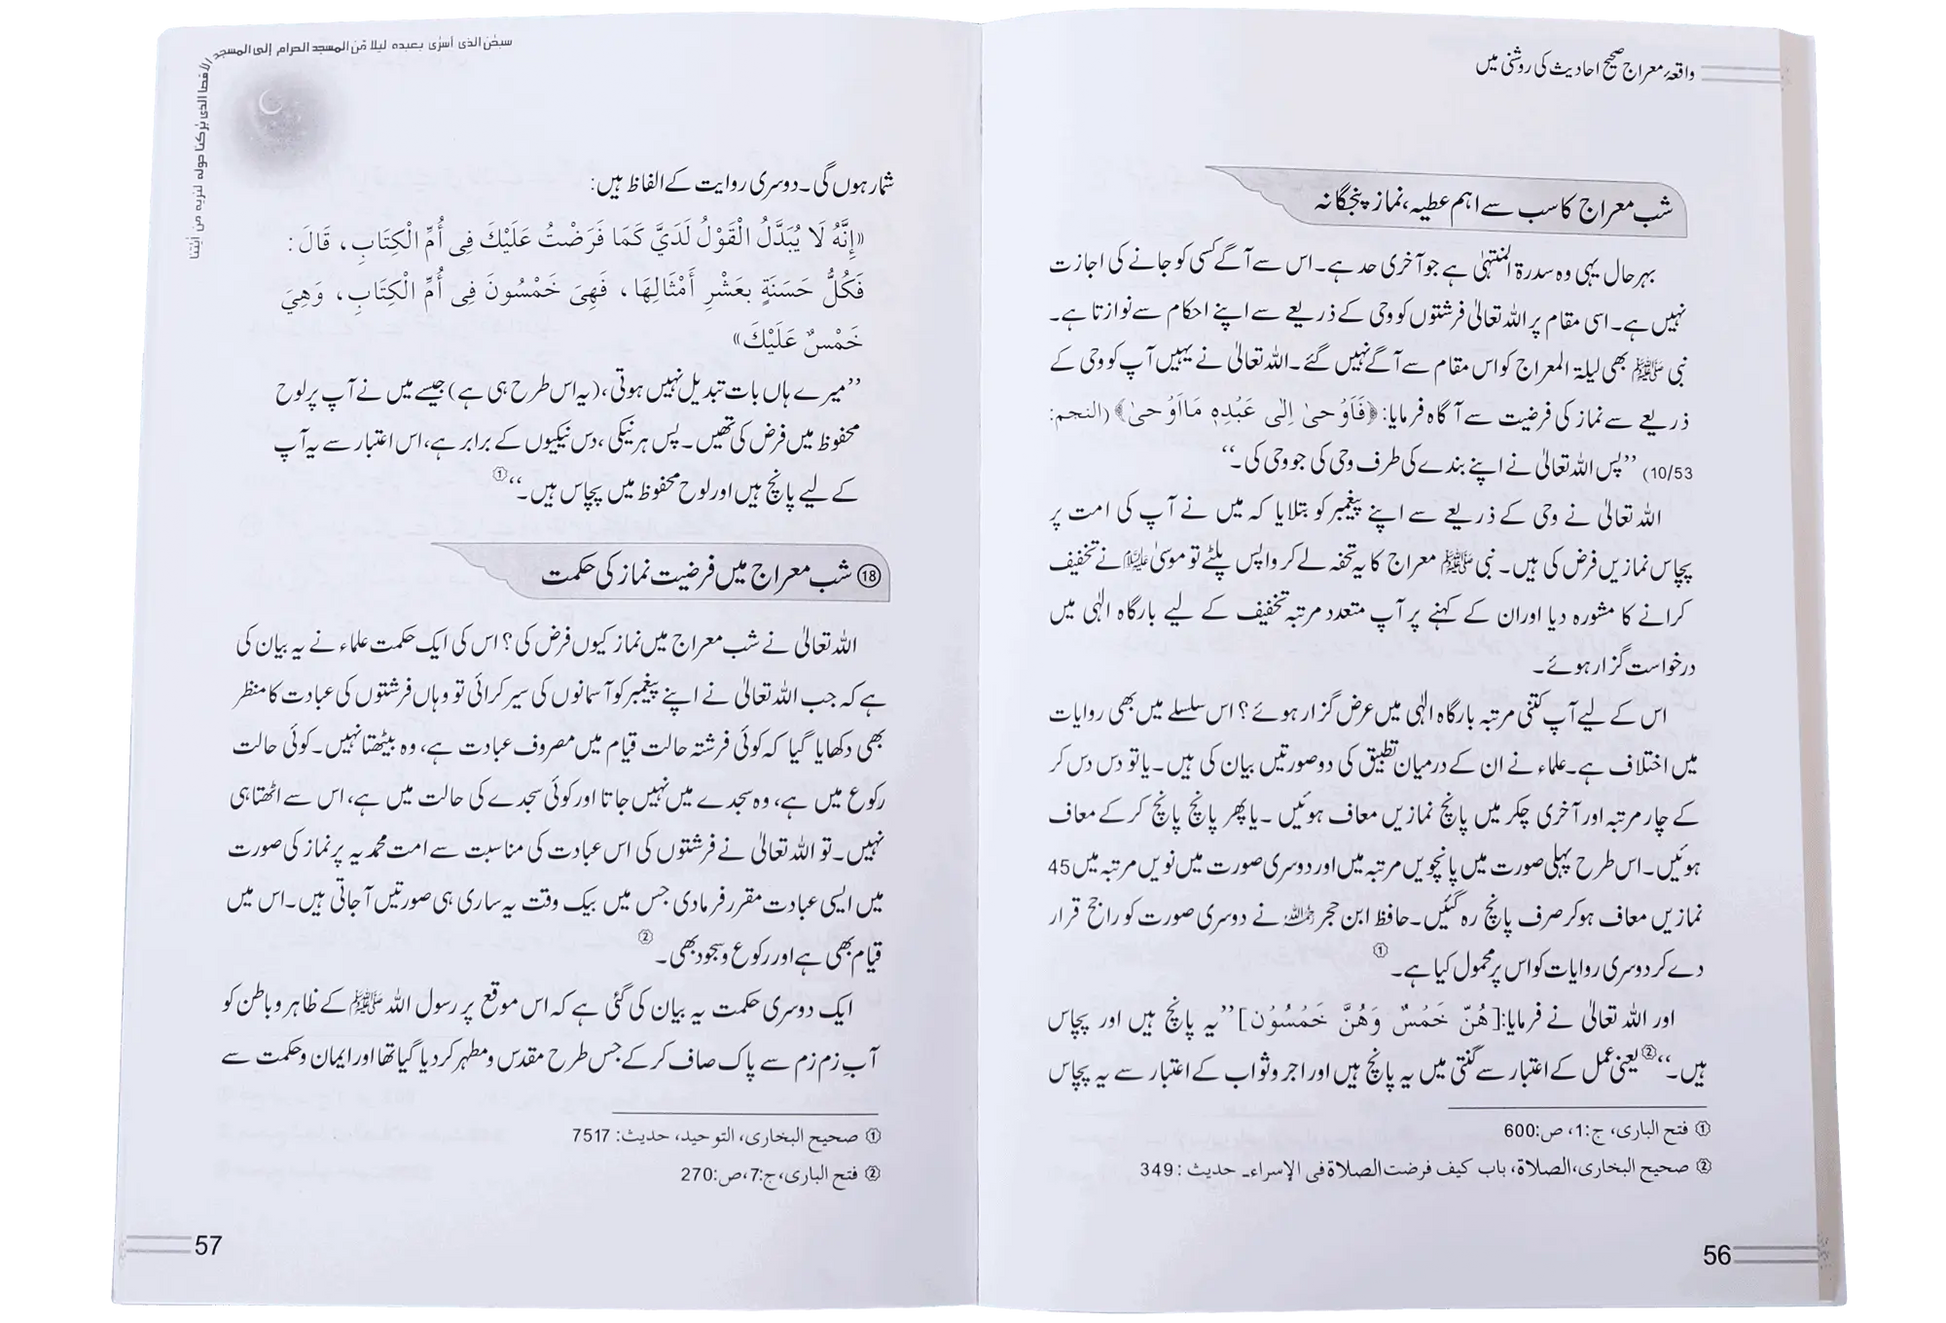 واقعۂ معراج صحیح احادیث کی روشنی میں
شب معراج کا سب سے اہم عطیہ، نماز پنجگانہ
بہرحال یہی وہ سدرۃ المنتہیٰ ہے جو آخری حد ہے۔ اس سے آگے کسی کو جانے کی اجازت
نہیں ہے۔ اسی مقام پر اللہ تعالیٰ فرشتوں کو وحی کے ذریعے سے اپنے احکام سے نوازتا ہے۔
نبی ﷺ بھی لیلۃ المعراج کو اس مقام سے آگے نہیں گئے۔ اللہ تعالیٰ نے یہیں آپ کو وحی کے
ذریعے سے نماز کی فرضیت سے آگاہ فرمایا: ﴿فَاَوْحیٰ اِلٰی عَبْدِہٖ مَااَوْحیٰ﴾ (النجم:
10/53) ’’پس اللہ تعالیٰ نے اپنے بندے کی طرف وحی کی جو وحی کی۔‘‘
اللہ تعالیٰ نے وحی کے ذریعے سے اپنے پیغمبر کو بتلایا کہ میں نے آپ کی امت پر
پچاس نمازیں فرض کی ہیں۔ نبی ﷺ معراج کا یہ تحفہ لے کر واپس پلٹے تو موسیٰ علیہ السلام نے تخفیف
کرانے کا مشورہ دیا اور ان کے کہنے پر آپ متعدد مرتبہ تخفیف کے لیے بارگاہ الٰہی میں
درخواست گزار ہوئے۔
اس کے لیے آپ کتنی مرتبہ بارگاہ الٰہی میں عرض گزار ہوئے؟ اس سلسلے میں بھی روایات
میں اختلاف ہے۔ علماء نے ان کے درمیان تطبیق کی دو صورتیں بیان کی ہیں۔ یا تو دس دس کر
کے چار مرتبہ اور آخری چکر میں پانچ نمازیں معاف ہوئیں۔ یا پھر پانچ پانچ کر کے معاف
ہوئیں۔ اس طرح پہلی صورت میں پانچویں مرتبہ میں اور دوسری صورت میں نویں مرتبہ میں 45
نمازیں معاف ہو کر صرف پانچ رہ گئیں۔ حافظ ابن حجر رحمہ اللہ نے دوسری صورت کو راجح قرار
دے کر دوسری روایات کو اس پر محمول کیا ہے۔ ①
اور اللہ تعالیٰ نے فرمایا: [هُنَّ خَمْسٌ وَهُنَّ خَمْسُوْن] ’’یہ پانچ ہیں اور پچاس
ہیں۔‘‘② یعنی عمل کے اعتبار سے گنتی میں یہ پانچ ہیں اور اجر و ثواب کے اعتبار سے یہ پچاس
① فتح الباری، ج:1، ص:600
② صحیح البخاری، الصلاة، باب کیف فرضت الصلاة فی الإسراء۔ حدیث: 349
56
سبحٰن الذی أسرٰی بعبدہ لیلا مّن المسجد الحرام إلی المسجد الأقصا الذی بٰرکنا حولہ لنریہ من اٰیٰتنا
شمار ہوں گی۔ دوسری روایت کے الفاظ ہیں:
«إِنَّهُ لَا يُبَدَّلُ الْقَوْلُ لَدَيَّ كَمَا فَرَضْتُ عَلَيْكَ فِى أُمِّ الْكِتَابِ، قَالَ:
فَكُلُّ حَسَنَةٍ بعَشْرِ أَمْثَالِهَا، فَهِيَ خَمْسُونَ فِى أُمِّ الْكِتَابِ، وَهِيَ
خَمْسٌ عَلَيْكَ»
’’میرے ہاں بات تبدیل نہیں ہوتی، (یہ اس طرح ہی ہے) جیسے میں نے آپ پر لوح
محفوظ میں فرض کی تھیں۔ پس ہر نیکی، دس نیکیوں کے برابر ہے، اس اعتبار سے یہ آپ
کے لیے پانچ ہیں اور لوح محفوظ میں پچاس ہیں۔‘‘①
⑱ شب معراج میں فرضیت نماز کی حکمت
اللہ تعالیٰ نے شب معراج میں نماز کیوں فرض کی؟ اس کی ایک حکمت علماء نے یہ بیان کی
ہے کہ جب اللہ تعالیٰ نے اپنے پیغمبر کو آسمانوں کی سیر کرائی تو وہاں فرشتوں کی عبادت کا منظر
بھی دکھایا گیا کہ کوئی فرشتہ حالت قیام میں مصروف عبادت ہے، وہ بیٹھتا نہیں۔ کوئی حالت
رکوع میں ہے، وہ سجدے میں نہیں جاتا اور کوئی سجدے کی حالت میں ہے، اس سے اٹھتا ہی
نہیں۔ تو اللہ تعالیٰ نے فرشتوں کی اس عبادت کی مناسبت سے امت محمدیہ پر نماز کی صورت
میں ایسی عبادت مقرر فرما دی جس میں بیک وقت یہ ساری ہی صورتیں آ جاتی ہیں۔ اس میں
قیام بھی ہے اور رکوع و سجود بھی۔ ②
ایک دوسری حکمت یہ بیان کی گئی ہے کہ اس موقع پر رسول اللہ ﷺ کے ظاہر و باطن کو
آبِ زم زم سے پاک صاف کر کے جس طرح مقدس و مطہر کر دیا گیا تھا اور ایمان و حکمت سے
① صحیح البخاری، التوحید، حدیث: 7517
② فتح الباری، ج:7، ص:270
57